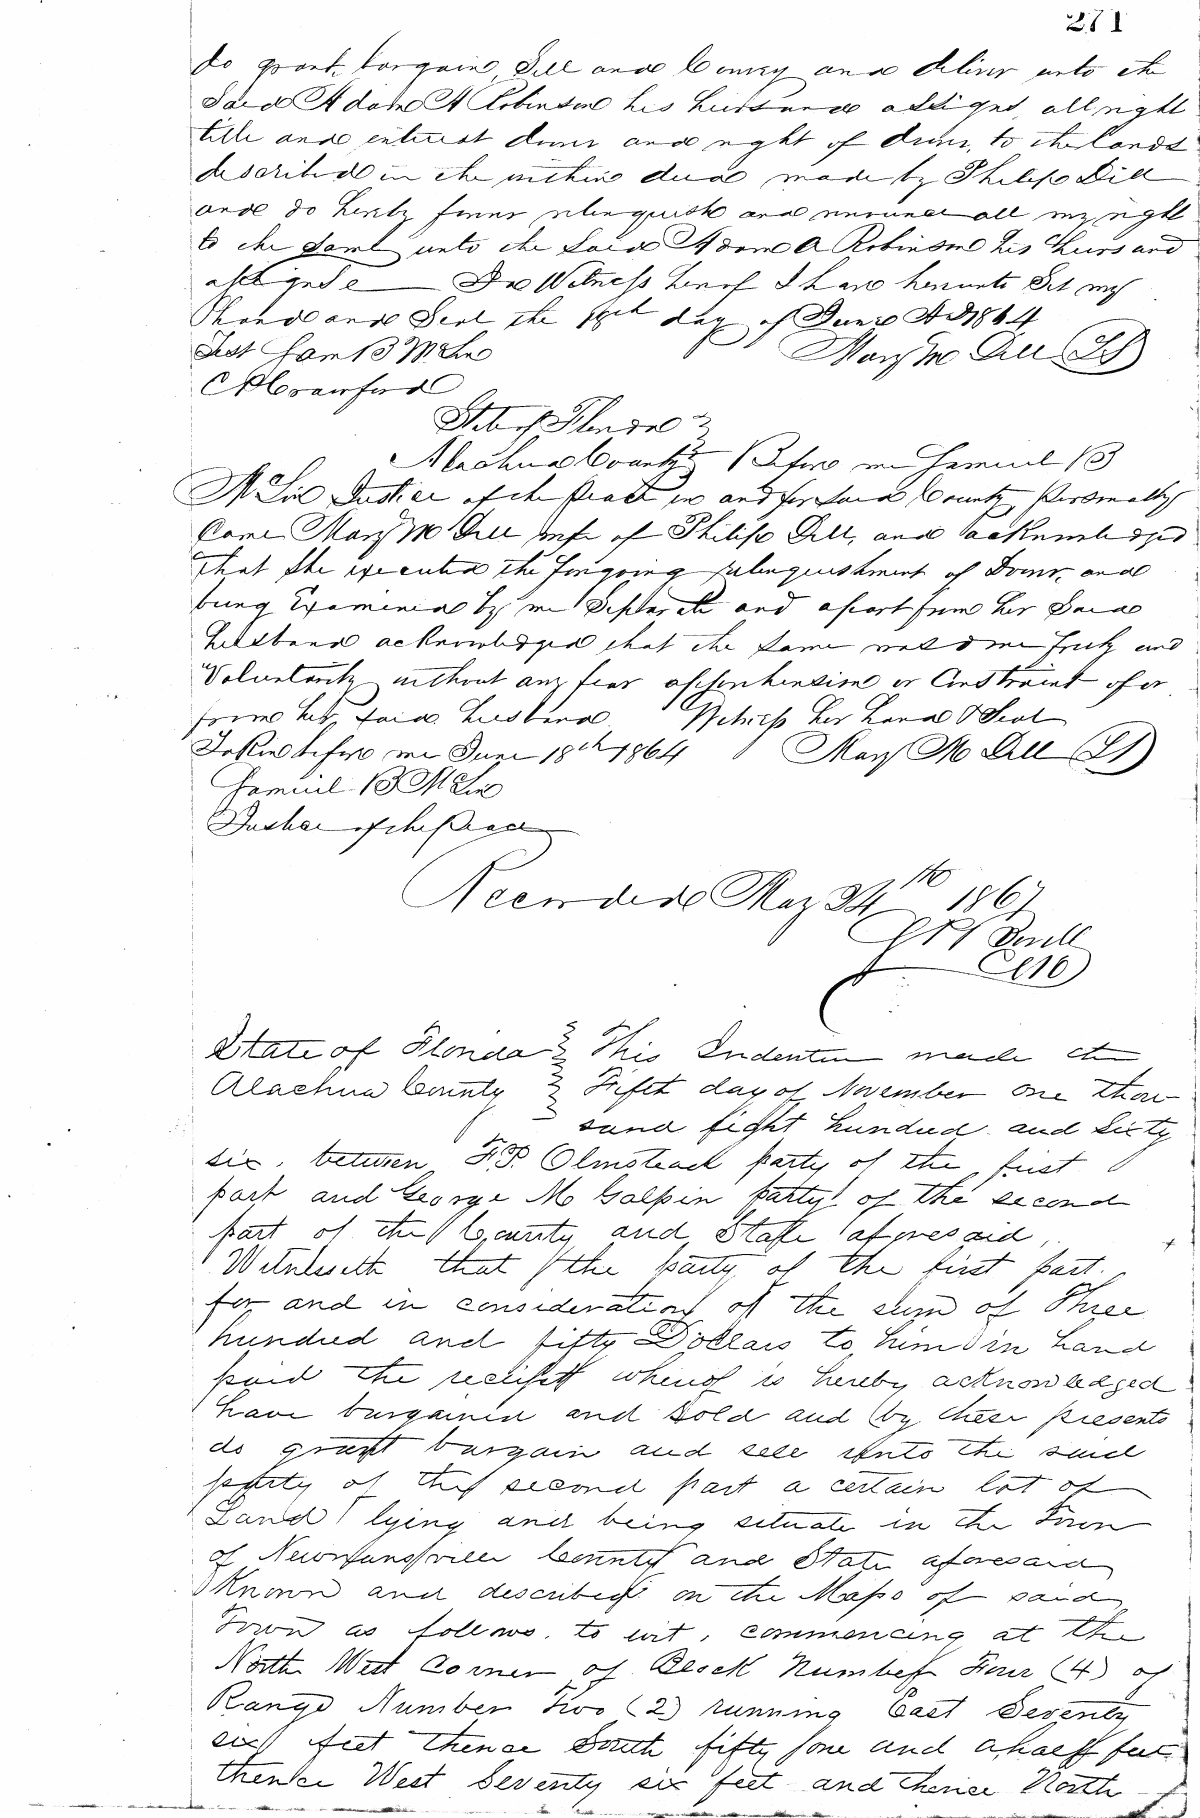 271
do grant, bargain, Sell and Convey and deliver unto the
Said Adam A Robinson his heirs and assigns, all right
title and interest dower and right of dower, to the lands
described in the within deed made by Philip Dill
and do hereby forever relinquish and renounce all my right
to the Same unto the Said Adam A Robinson his heirs and
assigns In Witness hereof I have hereunto Set my
hand and Seal the 18th day of June AD 1864
Test Sam B McLin Mary M Dill (LS)
Crawford
State of Florida
Alachua County Before me Samuel B
McLin Justice of the Peace in and for Said County, Personally
Came Mary M Dill wife of Philip Dill, and acknowledged
that She executed the foregoing relinquishment of Dower, and
being Examined by me Separate and apart from her Said
husband acknowledged that the Same was done freely and
Voluntarily without any fear apprehension or Constraint of or
from her said husband. Witness her hand & Seal
Taken before me June 18th 1864 Mary M Dill (LS)
Samuel B McLin
Justice of the Peace
Recorded May 24th 1867
State of Florida } This Indenture made the
Alachua County } Fifth day of November one thou
sand eight hundred and Sixty
six, between F.P. Olmstead party of the first
part and George M Galpin party of the second
part of the County and State aforesaid,
Witnesseth that the party of the first part.
for and in consideration of the sum of Three
hundred and fifty Dollars to him in hand
paid the receipt whereof is hereby acknowledged
have bargained and sold and by these presents
do grant bargain and sell unto the said
party of the second part a certain lot of
Land lying and being situate in the Town
of Newnansville County and State aforesaid
Known and described on the Maps of said
Town as follows. to wit, commencing at the
North West Corner of Block Number Four (4) of
Range Number Two (2) running East Seventy
six feet thence South fifty one and a half feet
thence West Seventy six feet and thence North